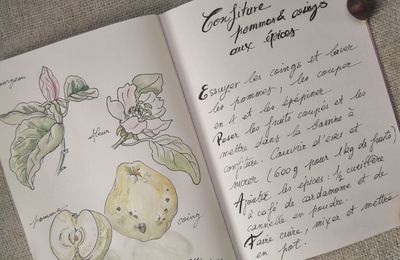 bourgeon
fleur
pomme
coing
Confiture
pommes & coings
aux épices
Essuyer les coings et laver
les pommes, les couper
en 4 et les épépiner
Peser les fruits coupés et les
mettre dans la bassine à
confiture. Couvrir d'eau et
sucrer (600g pour 1kg de fruits)
Ajouter les épices: ½ cuillère
à café de cardamome et de
cannelle en poudre.
Faire cuire, mixer et mettre
en pot.